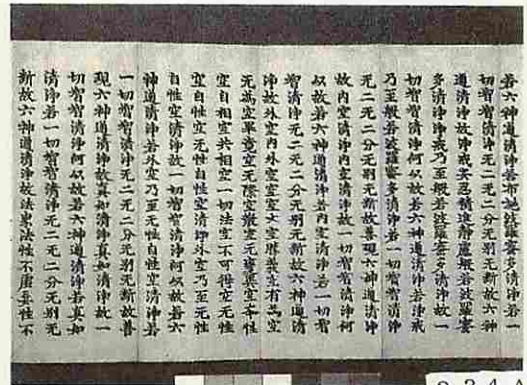 若六神通清淨若布施波羅蜜多清淨若一
切智智清淨无二无二分无別无斷故六神
通清淨故淨戒安忍精進靜慮般若波羅蜜
多清淨淨戒乃至般若波羅蜜多清淨故一
切智智清淨何以故若六神通清淨若淨戒
乃至般若波羅蜜多清淨若一切智智清淨
无二无二分无別无斷故善現六神通清淨
故內空清淨內空清淨故一切智智清淨何
以故若六神通清淨若內空清淨若一切智
智清淨无二无二分无別无斷故六神通清
淨故外空內外空空空大空勝義空有為空
无為空畢竟空无際空散空无變異空本性
空自相空共相空一切法空不可得空无性
空自性空无性自性空清淨外空乃至无性
自性空清淨故一切智智清淨何以故若六
神通清淨若外空乃至无性自性空清淨若
一切智智清淨无二无二分无別无斷故善
現六神通清淨故真如清淨真如清淨故一
切智智清淨何以故若六神通清淨若真如
清淨若一切智智清淨无二无二分无別无
斷故六神通清淨故法界法性不虛妄性不